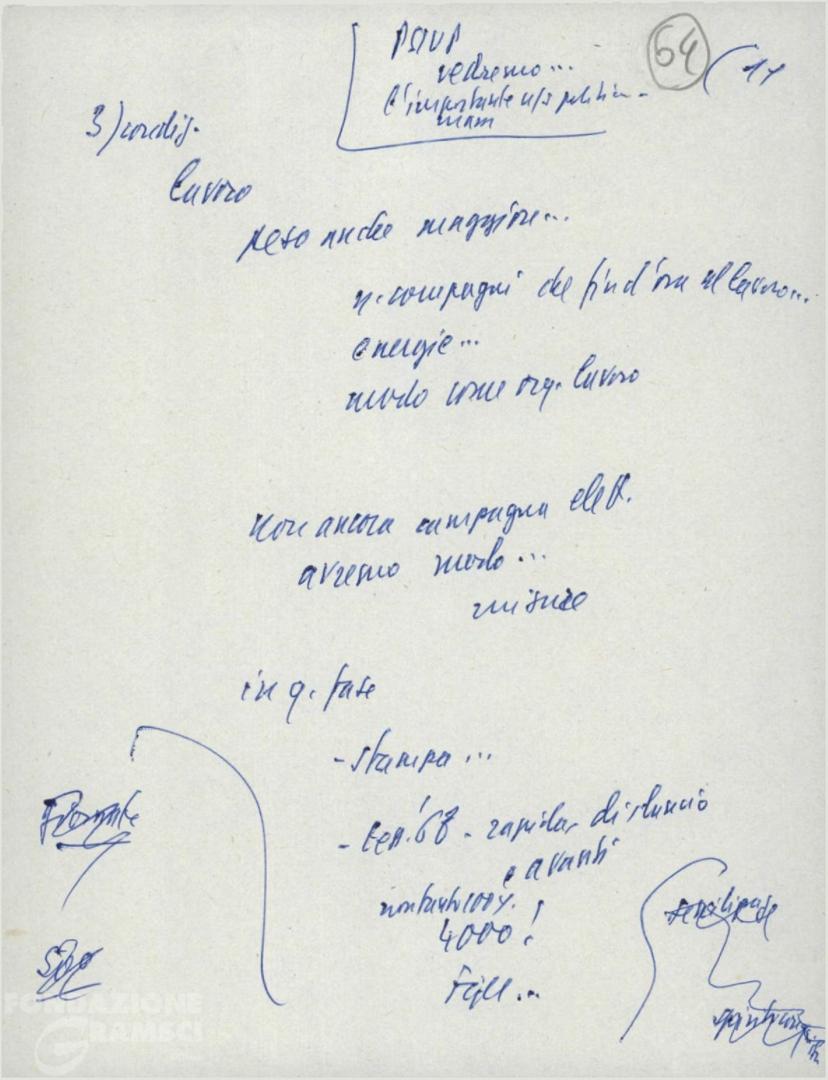 PSIUP
vedremo...
l'importante è politica-
mam
54
( 17
3) condiz.
lavoro
peso anche maggiore...
n. compagni che fin d'ora al lavoro...
energie...
modo come org. lavoro
Non ancora campagna elett.
avremo modo...
misure
in q. fase
- stampa...
- tess. '68 - rapida, di slancio
e avanti
non tanto 100%.
4000!
Figc...
Piemonte
FONDAZIONE
GRAMSCI